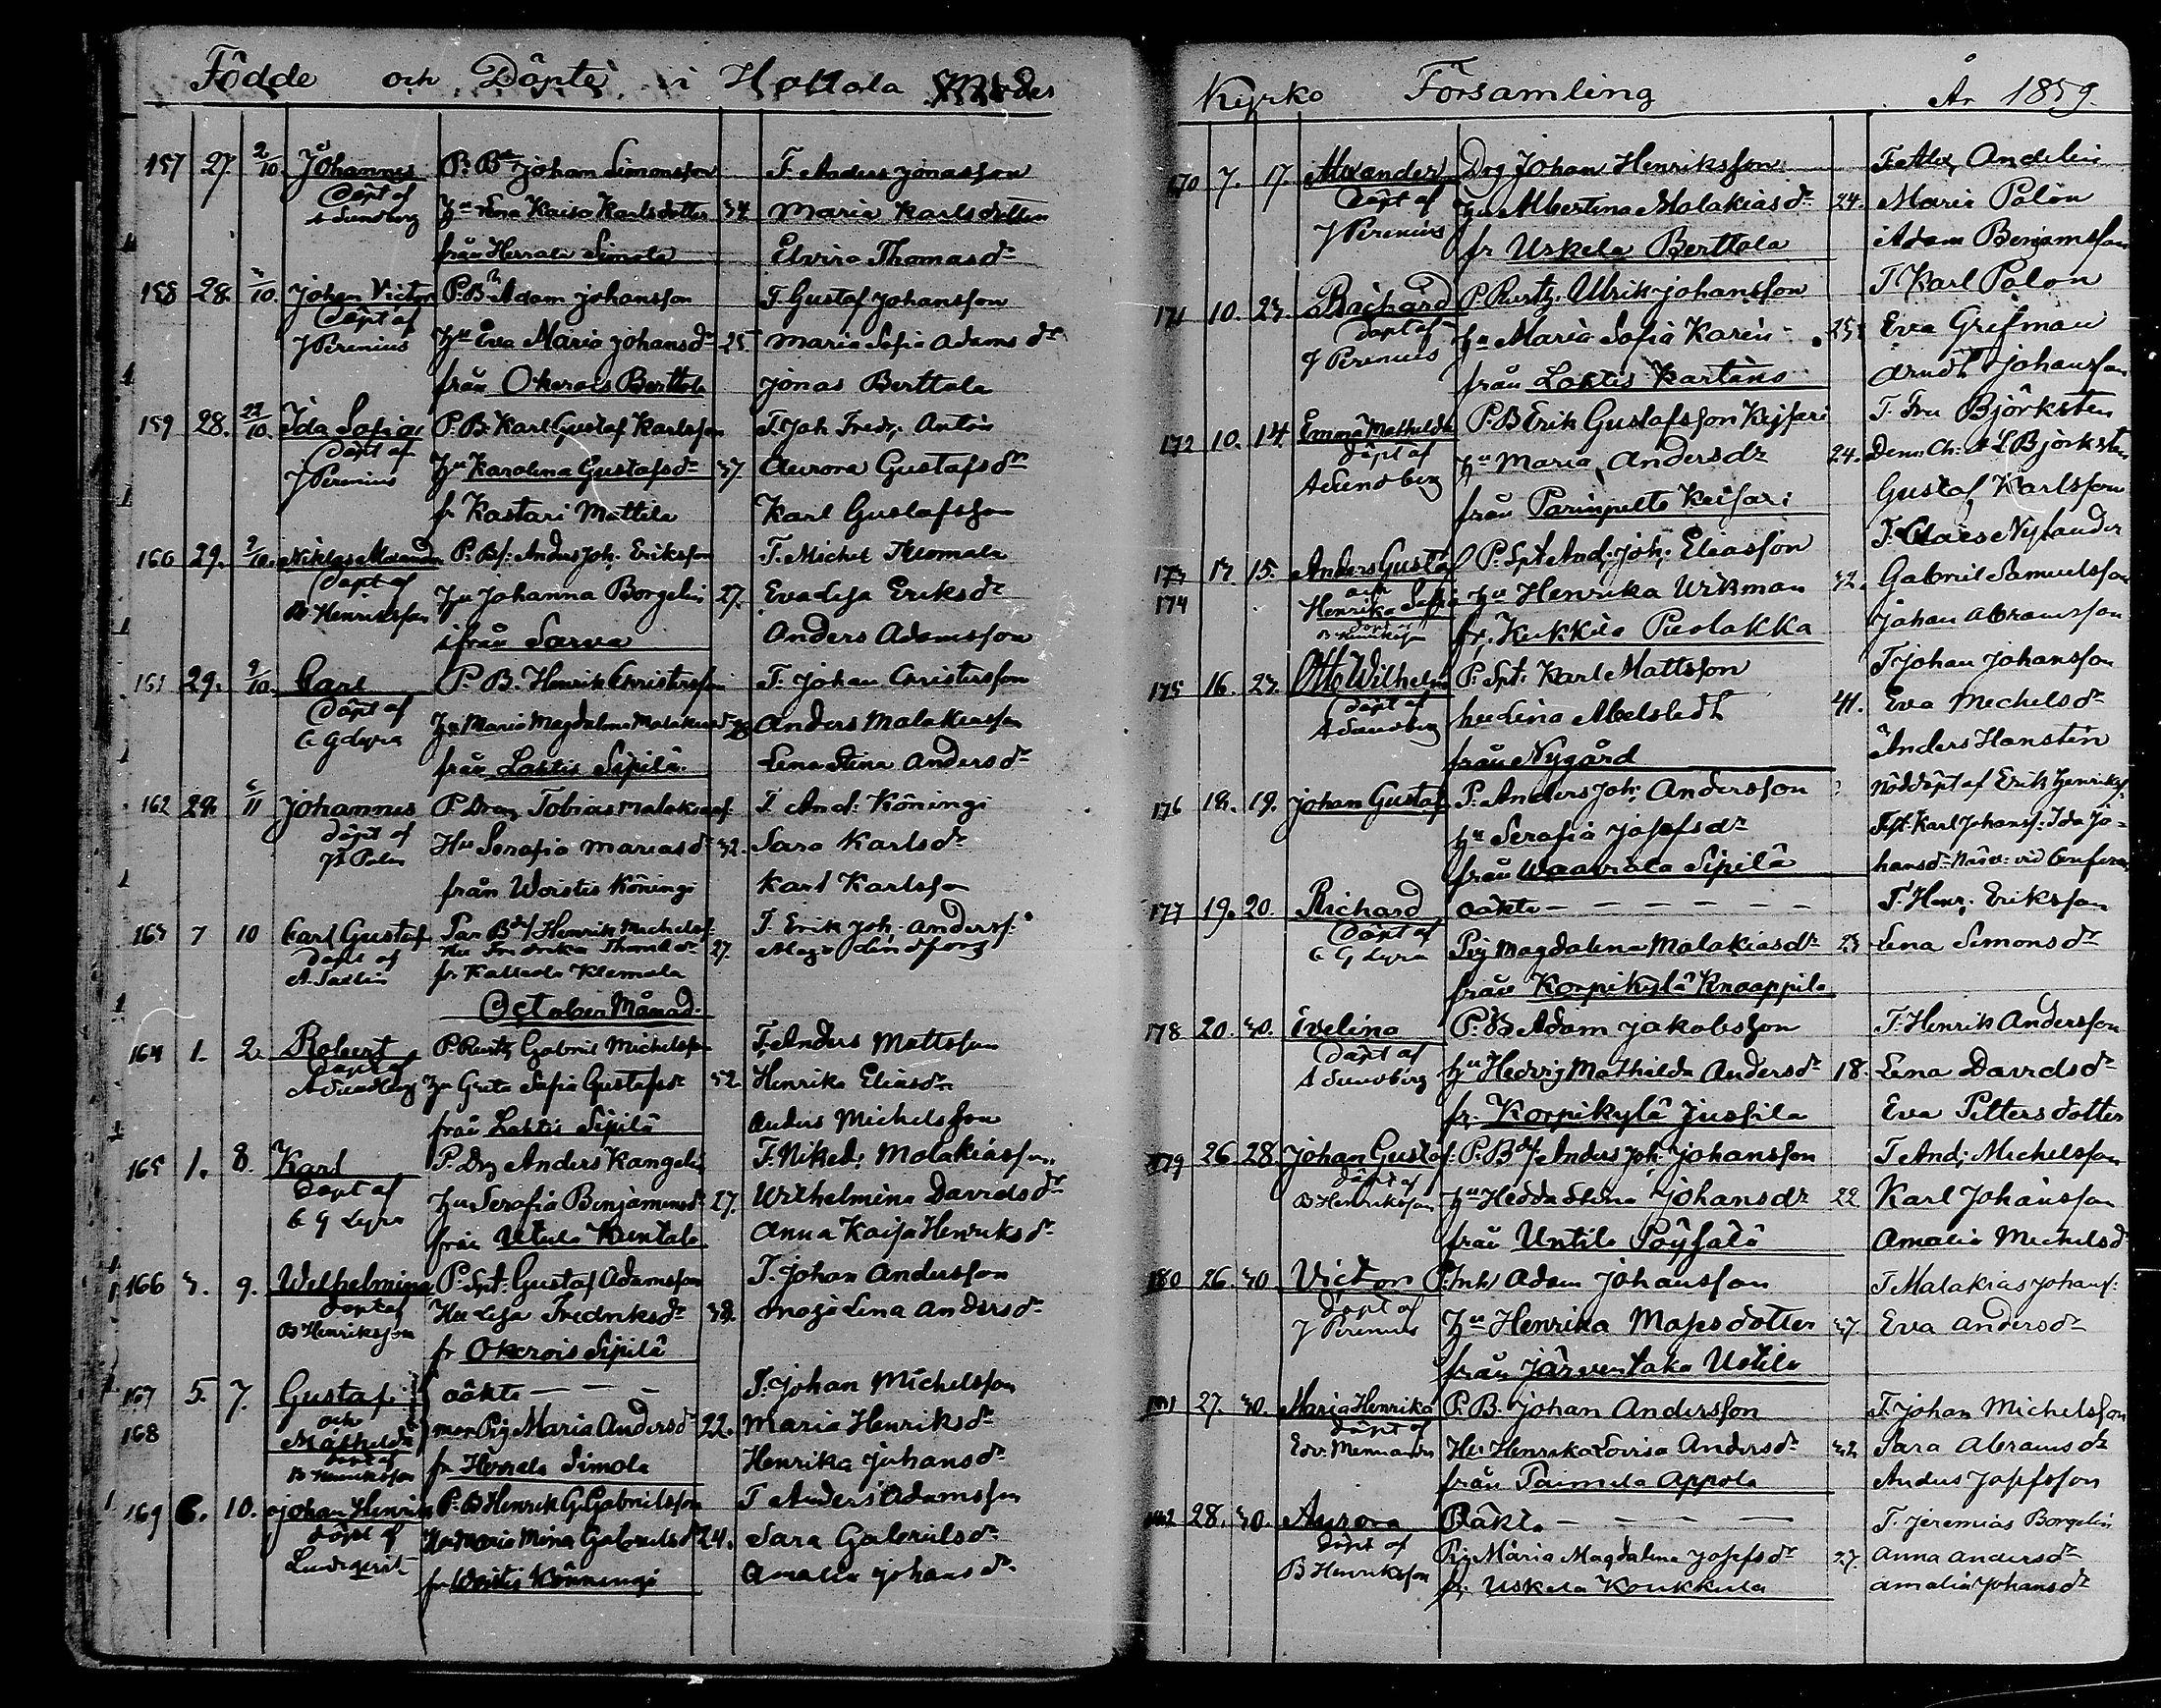 Födde och Döpte i Hollola Moder
157 27. 2/10 Johannes P. Bd Johan Simonsson T. Anders Jonasson
Döpt af
A Sundberg Hu Lena Kaisa Karlsdotter 34. Maria Karlsdotter
från Herrala Simola Elvira Thomasdr
158 28. /10. Johan Victor P. Bd Adam Johansson T. Gustaf Johansson
Döpt af
J Perenius Hu Eva Maria Johansdr 25. Maria Sofia Adamsdr
från Okerois Berttola Jonas Berttala
159 28. 22/10. Ida Sofia P. B. Karl Gustaf Karlsson T. Joh Fredr: Antin
Döpt af
J Perenius Hu Karolina Gustafsdr 37. Aurora Gustafsdr
fr Kastari Mattila Karl Gustafsson
160 29. 2/10. Niklas Alexander P. Bs: Anders Joh: Eriksson T. Michel Klomala
Döpt af
B Henriksson Hu Johanna Borgelin 27. Eva Lisa Eriksdr
ifrån Sarva Anders Adamsson
161 29. 9/10. Carl P. B. Henrik Christersson T. Johan Christersson
Döpt af
C G Lyra Hu Maria Magdalena Malakiasdr Anders Malakiasson
från Lahtis Sipilä Lena Stina Andersdr
162 29. 6/11 Johannes P. Dräng Tobias Malakiass T. And: Köningi
Döpt af
Palen Hu Serafia Mariasdr 32. Sara Karlsdr
från Woistis Köningi Karl Karlsson
163 7 10 Carl Gustaf Par Bds Henrik Michelss: T. Erik Joh. Anderss:
Döpt af Hu Fredrika Thomasdr 27. Maja Lindfors
A. Sallin fr Kalliola Klemola
October Månad.
164 1. 2. Robert P. Rusth Gabriel Michelsson T. Anders Mattsson
Döpt af
A Sundberg Hu Greta Sofia Gustafsdr 32. Henrika Eliasdr
från Lahtis Sipilä Anders Michelsson
165 1. 8. Karl P. Drg Anders Kangelin T. Niked: Malakiasson
Döpt af
C G Lyra Hu Serafia Benjaminsdr 27. Wilhelmina Davidsdr
från Utula Kuntala Anna Kaisa Henriksdr
166 3. 9. Wilhelmina P. Spt. Gustaf Adamsson T. Johan Andersson
Döpt af
B Henriksson Hu Lisa Fredriksdr 38. Maja Lena Andersdr
fr Okerois Sipilä
167 5. 7. Gustaf oäkta — — — T. Johan Michelsson
och
168 Mathilda mor Pig Maria Andersdr 22. Maria Henriksdr
Döpt af
B Henriksson fr Herrala Simola Henrika Johansdr
169 6. 10. Johan Henrik P. B Henrik G. Gabrielsson T Anders Adamsson
Döpt af
Lindqvist Hu Maria Mina Gabrielsdr 24. Sara Gabrielsdr
fr Woistis Könningi Amalia Johansdr
Kyrko Församling År 1859.
170 7. 17. Alexander Drg Johan Henriksson T. Alex. Andelin
Döpt af
J Perenius Hu Albertina Malakiasdr 24. Maria Palön
fr Uskela Berttala Adam Benjamsson
171 10. 23. Richard P. Rustg. Ulrik Johansson T Karl Palon
Döpt af
J Perenius Hu Maria Sofia Karén 25. Eva Grefman
från Lahtis Kartano Arndt Johansson
172 10. 14 Emma Mathilda P. B Erik Gustafsson Kejsari T. Fru Björksten
Döpt af
A Sundberg Hu Maria Andersdr 24. Dem. Ch: & L Björksten
från Parinpelto Keisari Gustaf Karlsson
173 13. 15. Anders Gustaf P. Spt And: Joh: Eliasson T. Claes Nylander
174 och
Henrika Sofia Hu Henrika Wikman 32. Gabriel Samuelsson
Döpt af
B Henriksson fr. Kukkila Puolakka Johan Abramsson
175 16. 23. Otto Wilhelm P. Spt. Karl Mattsson T Johan Johansson
Döpt af
A Sundberg hu Lina Abelstedt 41. Eva Michelsdr
från Nygård Anders Hanstén
176 18. 19. Johan Gustaf P. Anders Joh: Andersson ? Nöddöpt af Erik Henrikss.
Hu Serafia Josefsdr Karl Johanss: Ida Jo-
från Waavisla Sipilä hansdr
177 19. 20. Richard oäkta — — — — — — T. Henr: Eriksson
Döpt af
C G Lyra Pig Magdalena Malakiasdr 23 Lena Simonsdr
från Korpikylä Knaappila
178 20. 30. Evelina P. B Adam Jakobsson T. Henrik Andersson
Döpt af
A Sundberg Hu Hedvig Mathilda Andersdr 18. Lena Davidsdr
fr. Korpikylä Jussila Eva Pettersdotter
179 26 28. Johan Gustaf: P. Bds Anders Joh: Johansson T And: Michelsson
Döpt af
B Henriksson Hu Hedda Stina Johansdr 22 Karl Johansson
från Untila Pöysälä Amalia Michelsd
180 26. 30 Victor P. Inh Adam Johansson T Malakias Johanss:
Döpt af
J Perenius Hu Henrika Mapsdotter 37 Eva Andersdr
från Järventaka Uotila
181 27. 30. Maria Henrika P. B. Johan Andersson T. Johan Michelsson
Döpt af
Edv. Mennander Hu Henrika Lovisa Andersdr 32 Sara Abramsdr
från Paimela Appola Anders Josefsson
182 28. 30. Aurora Oäkta — — — — T. Jeremias Borgelin
Döpt af
B Henriksson Pig Maria Magdalena Josefsdr 27. Anna Andersdr
fr. Uskila Koukkula Amalia Johansdr